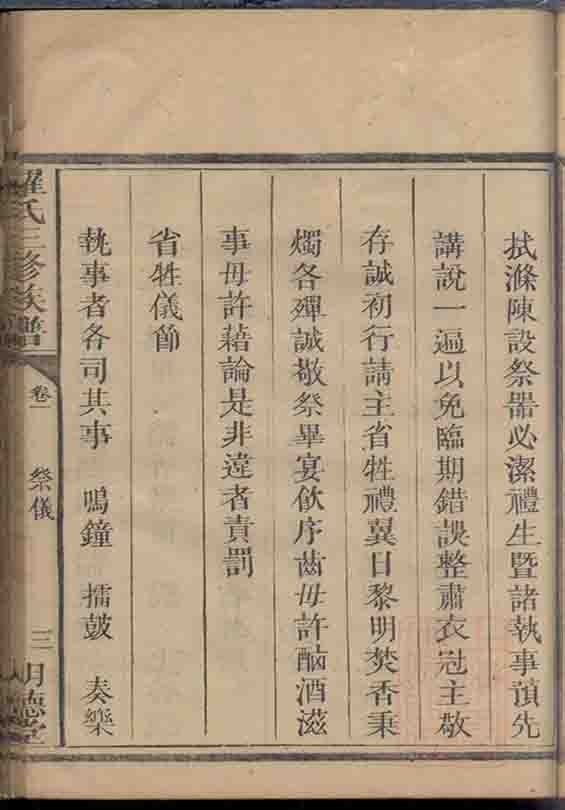 拭滌陳設祭器必潔禮生暨諸執事預先
講說一遍以免臨期錯誤整肅衣冠主敬
存誠初行請主省牲禮翼日黎明焚香秉
燭各殫誠敬祭畢宴飲序齒毋許酗酒滋
事毋許藉論是非違者責罰
省牲儀節
執事者各司其事 鳴鐘 擂鼓 奏樂
羅氏三修族譜 卷一 祭儀 三 明德堂